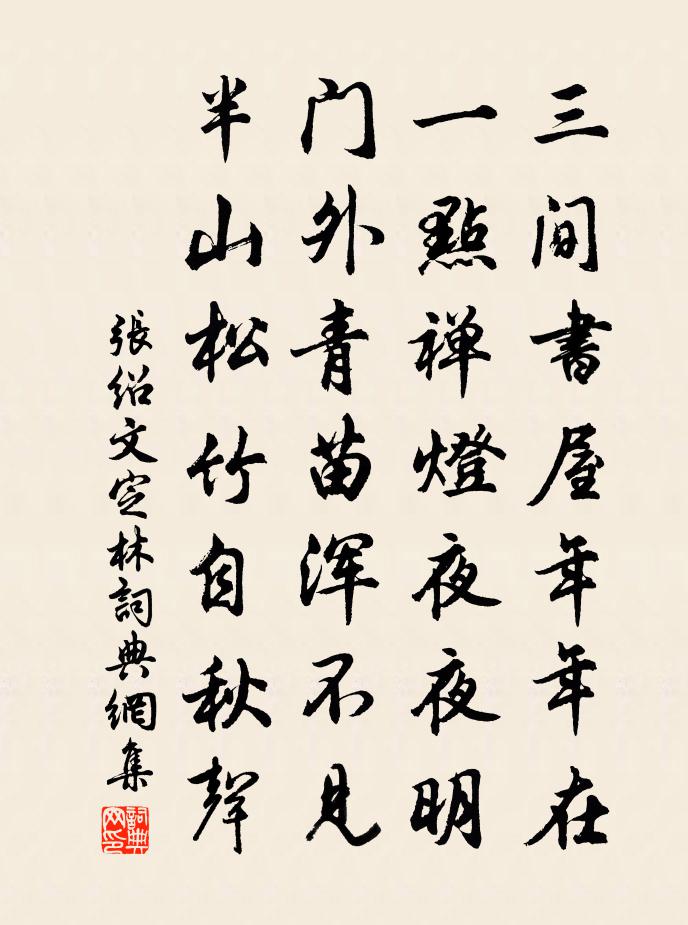 三间書屋年年在
一點禅燈夜夜明
门外青苗浑不见
半山松竹自秋聲
張紹文定林詞典網集
詞典网印